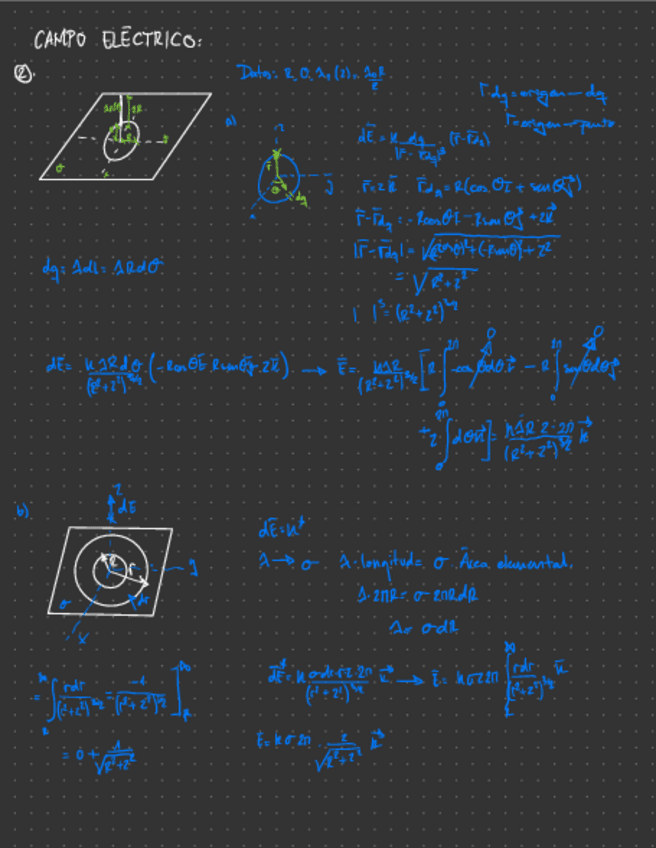 CAMPO ELÉCTRICO:
2).
Datos: R, σ, λ₁(z) = λ₀R/z
r⃗dq = origen → dq
r⃗ = origen → punto
a)
dE⃗ = k dq/|r⃗ - r⃗dq|³ (r⃗ - r⃗dq)
r⃗ = z k⃗ r⃗dq = R(cos θ i⃗ + sen θ j⃗)
r⃗ - r⃗dq = -Rcos θ i⃗ - Rsen θ j⃗ + z k⃗
|r⃗ - r⃗dq| = √((-Rcos θ)² + (-Rsen θ)² + z²)
= √(R² + z²)
dq = λ dl = λ R dθ
| |³ = (R² + z²)^(3/2)
dE⃗ = k λ R dθ/(R² + z²)^(3/2) (-R cos θ i⃗ - R sen θ j⃗ + z k⃗) → E⃗ = k λ R/(R² + z²)^(3/2) [-R ∫₀^2π cos θ dθ i⃗ - R ∫₀^2π sen θ dθ j⃗
+ z ∫₀^2π dθ k⃗] = k λ R z · 2π/(R² + z²)^(3/2) k⃗
b)
z
dE⃗
R
r
y
σ
dr
x
λ → σ λ · longitud = σ · Área elemental.
λ · 2πR = σ · 2πRdR
λ = σ dR
dE⃗ = k σ dr · r z · 2π/(r² + z²)^(3/2) k⃗ → E⃗ = k σ z 2π ∫ r dr/(r² + z²)^(3/2) k⃗
= ∫ r dr/(r² + z²)^(3/2) = -1/(r² + z²)^(1/2) ]
= 0 + 1/√(R² + z²)
E⃗ = k σ 2π z/√(R² + z²) k⃗